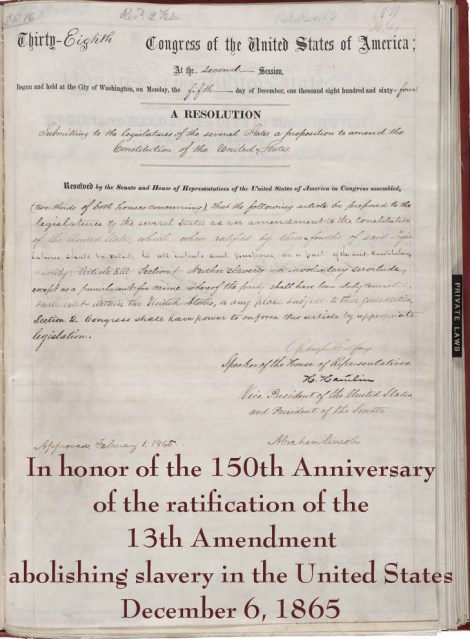 Rec'd 2 Feb.
Thirty-Eighth Congress of the United States of America;
At the second Session,
Begun and held at the City of Washington, on Monday, the fifth day of December, one thousand eight hundred and sixty-four
A RESOLUTION
Submitting to the legislatures of the several States a proposition to amend the
Constitution of the United States
Resolved by the Senate and House of Representatives of the United States of America in Congress assembled,
(two thirds of both houses concurring), that the following article be proposed to the
legislatures of the several states as an amendment to the constitution
of the United States, which, when ratified by three-fourths of said legis-
latures shall be valid, to all intents and purposes, as a part of the said Constitution,
namely: Article XIII. Section 1. Neither slavery nor involuntary servitude,
except as a punishment for crime whereof the party shall have been duly convicted,
shall exist within the United States, or any place subject to their jurisdiction.
Section 2. Congress shall have power to enforce this article by appropriate
legislation.
Schuyler Colfax
Speaker of the House of Representatives
H. Hamlin
Vice President of the United States
and President of the Senate
Approved February 1, 1865.
Abraham Lincoln
PRIVATE LAWS
In honor of the 150th Anniversary
of the ratification of the
13th Amendment
abolishing slavery in the United States
December 6, 1865